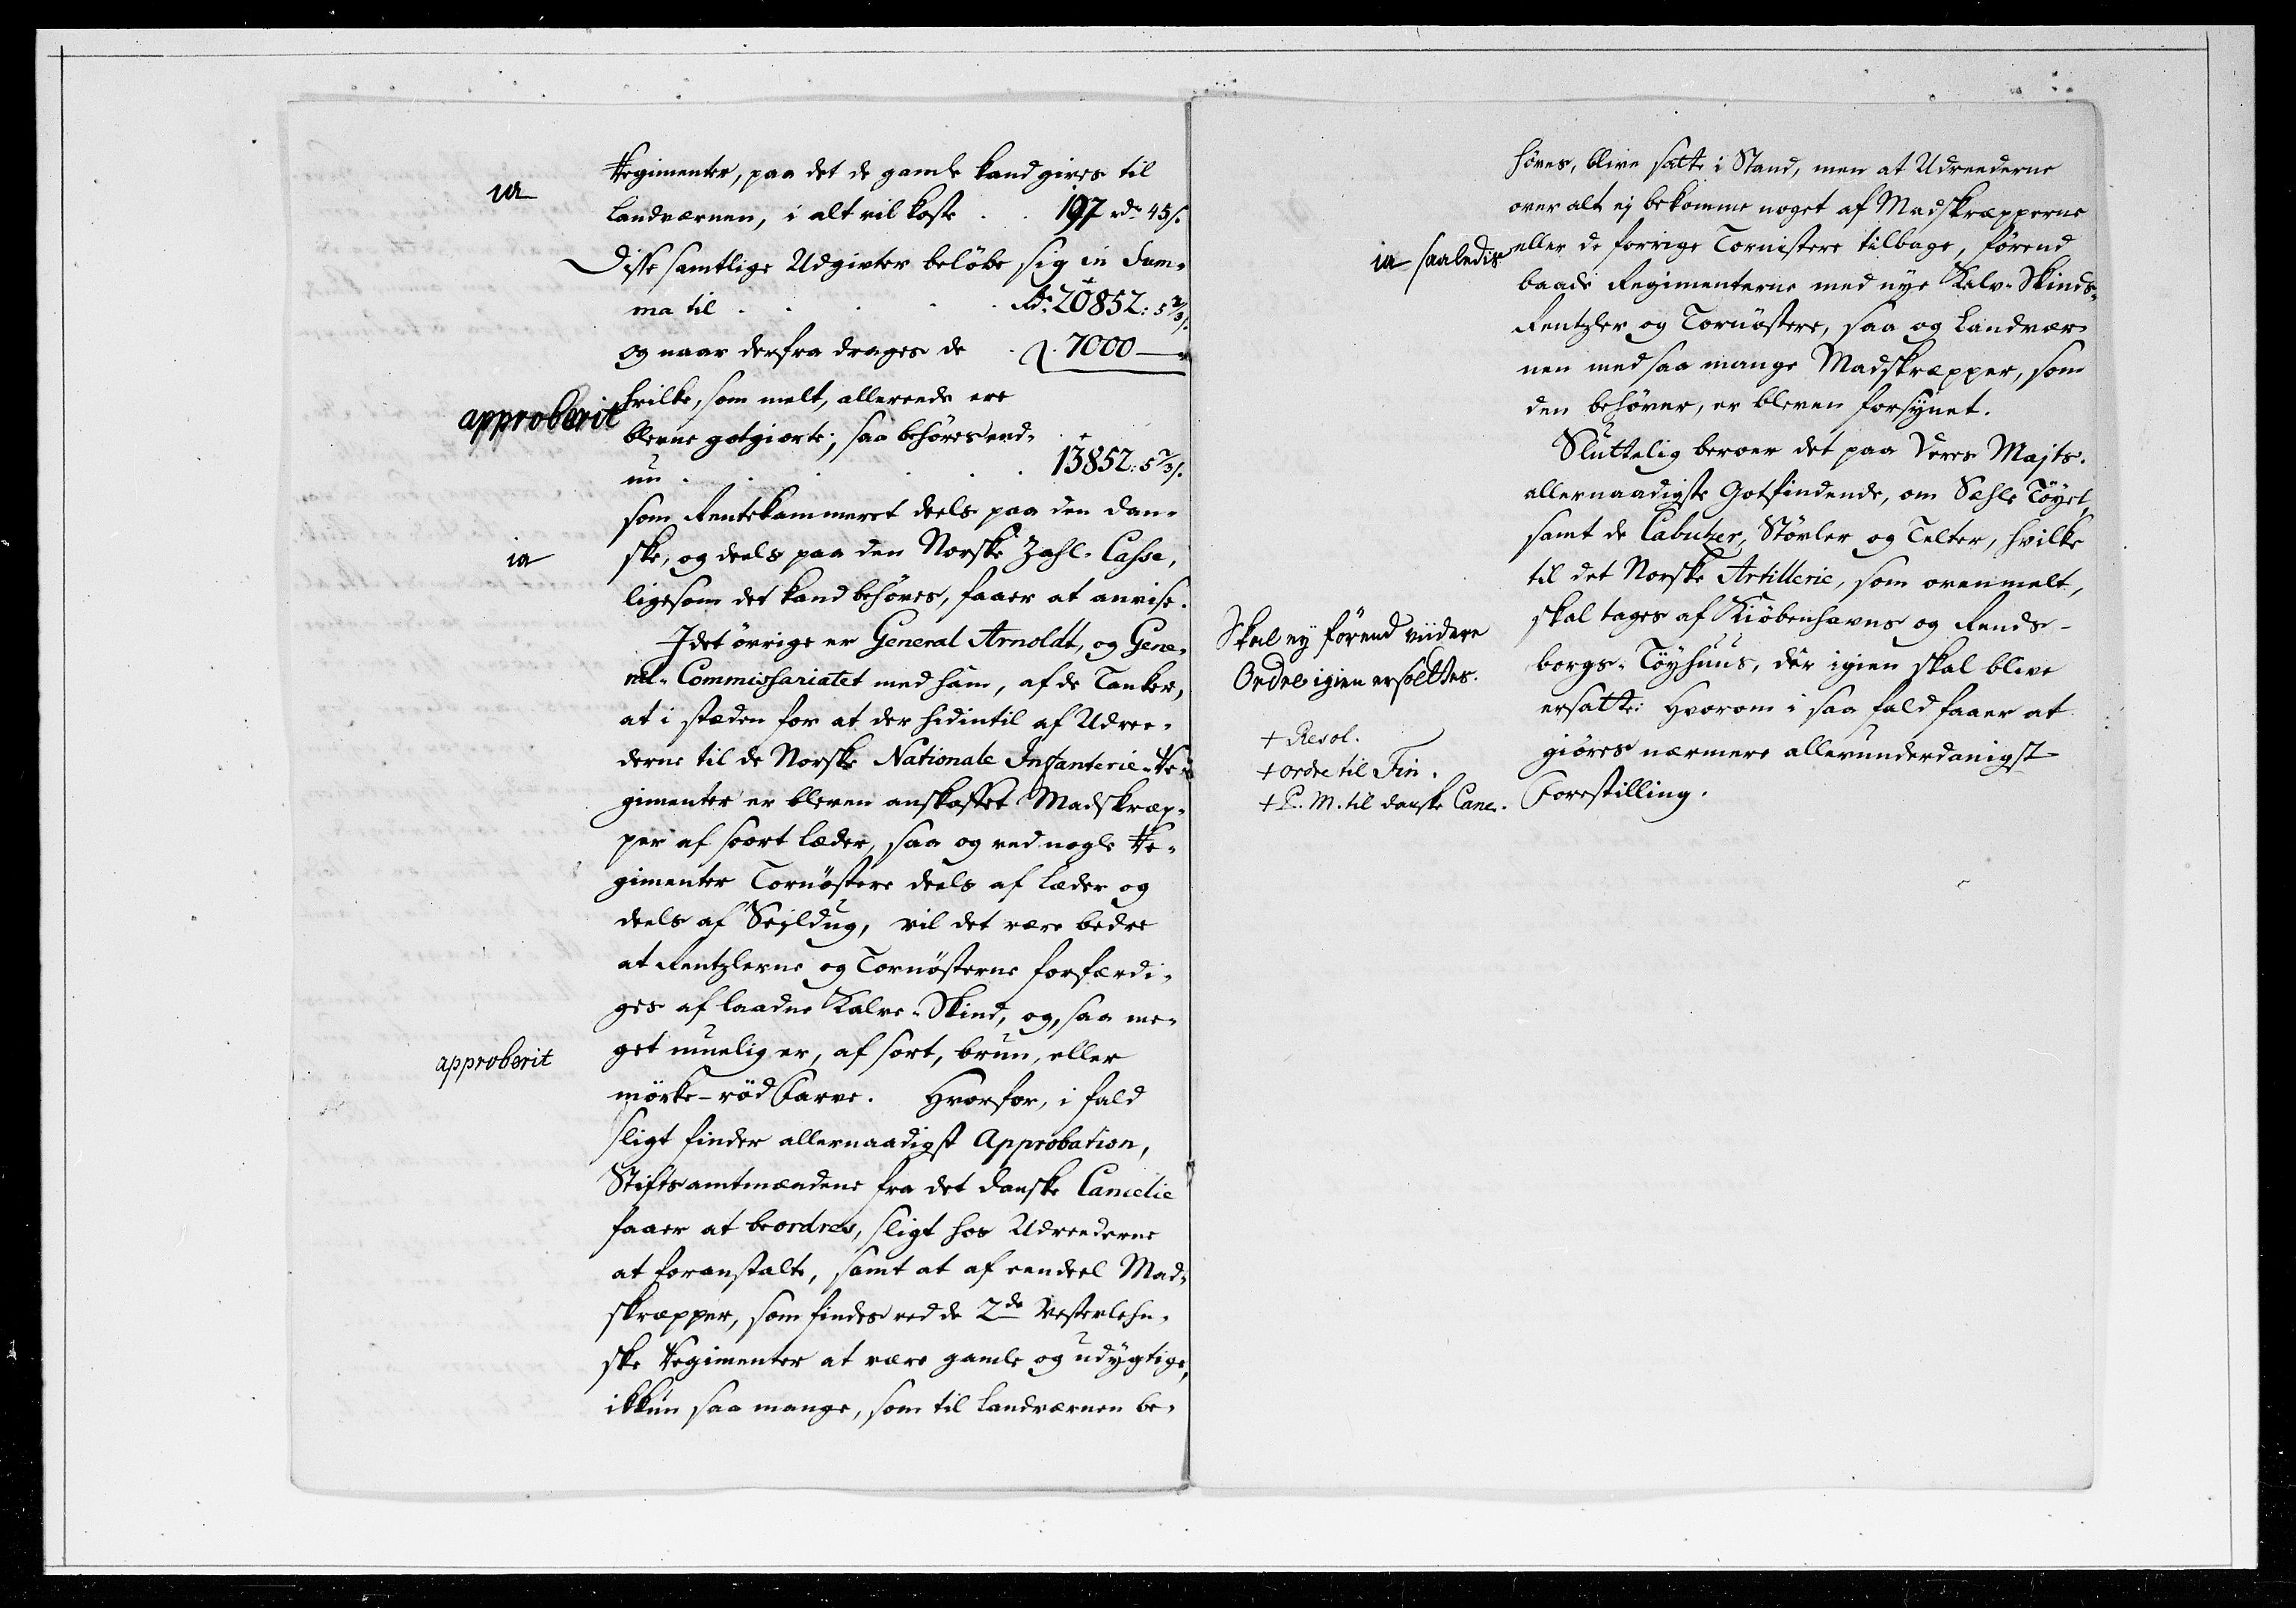 Regimenter, paa det de gamle kand gives til
ia
Landværnen, i alt vil koste . . 197 rdr 45 s.
Disse samtlige Udgivter beløbe sig in Sum-
ma til . . . . Rdr. 20852: 5 2/3 s.
og naar derfra drages de . . 7000 —
hvilke, som melt, allereede ere
approberit
blevne gotgiorte; saa behøves end-
nu . . . . . 13852: 5 2/3 s.
som Rentekammeret deels paa den dan-
ia
ske, og deels paa den Norske Zahl-Casse,
ligesom det kand behøves, faaer at anvise.
I det øvrige er General Arnoldt, og Gene-
ral-Commissariatet med ham, af de Tanker,
at i stæden for at der hidintil af Udree-
derne til de Norske Nationale Infanterie-Re-
gimenter er bleven anskaffet Madskræp-
per af soort Læder, saa og ved nogle Re-
gimenter Tornøstere deels af Læder og
deels af Seyldug, vil det være bedre
at Rentzlerne og Tornøsterne forfærdi-
ges af laadne Kalve-Skind, og, saa me-
approberit
get muelig er, af sort, brun, eller
mørke-rød Farve. Hvorfor, i fald
sligt finder allernaadigst Approbation,
Stiftsamtmændene fra det danske Cancelie
faaer at beordres, sligt hos Udreederne
at foranstalte, samt at af eendeel Mad-
skræpper, som findes ved de 2de Vesterlehn-
ske Regimenter at være gamle og udygtige,
ikkun saa mange, som til Landværnen be-
høves, blive satte i Stand, men at Udreederne
over alt ej bekomme noget af Madskræpperne
ia saaledis
eller de forrige Tornistere tilbage, førend
baade Regimenterne med nye Kalv-Skinds-
Rentzler og Tornøstere, saa og Landvær-
nen med saa mange Madskræpper, som
den behøver, er bleven forsynet.
Sluttelig beroer det paa Deres Majts.
allernaadigste Gotfindende, om Sæhle Töyet,
samt de Cabutzer, Støvler og Telter, hvilke
til det Norske Artillerie, som ovenmelt,
skal tages af Kiøbenhavns og Rends-
borgs-Töyhuus, der igien skal blive
ersatte: Hvorom i saa fald faaer at
giøres nærmere allerunderdanigst
Forestilling.
Skal ey førend viidere
Ordre igien ersættes.
+ Resol.
+ ordre til Fin.
+ P. M. til danske Canc.